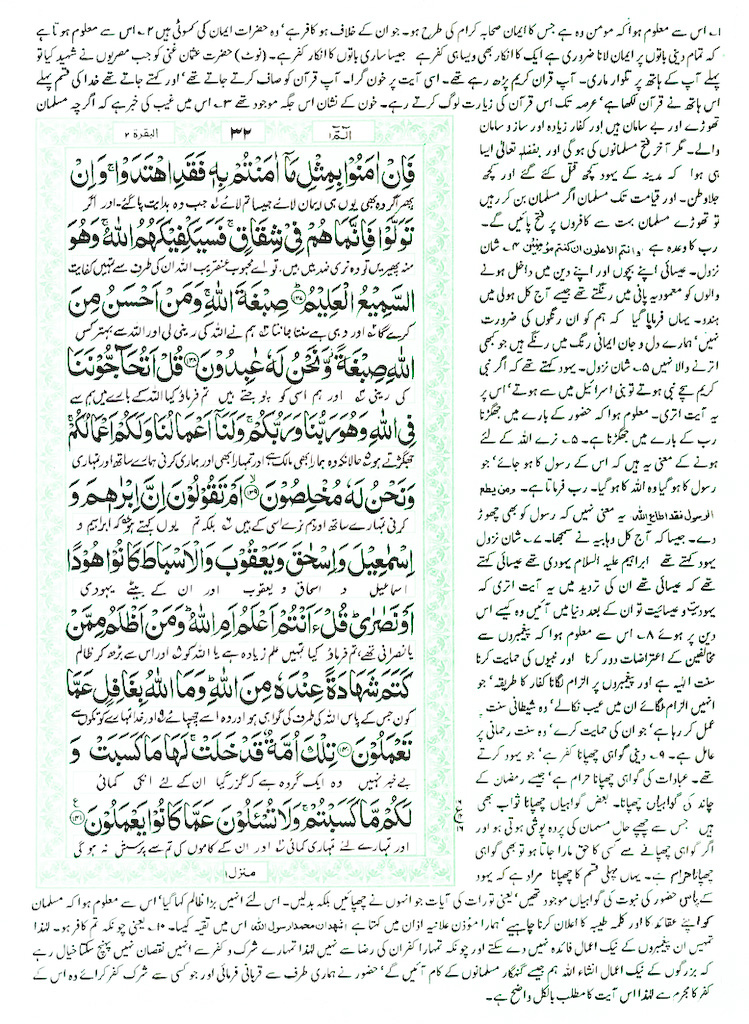 ۱۔ اس سے معلوم ہوا کہ مومن وہ ہے جس کا ایمان صحابہ کرام کی طرح ہو۔ جو ان کے خلاف ہو کافر ہے' وہ حضرات ایمان کی کسوٹی ہیں ۲۔ اس سے معلوم ہوتا ہے
کہ تمام دینی باتوں پر ایمان لانا ضروری ہے ایک کا انکار بھی ویسا ہی کفر ہے جیسا ساری باتوں کا انکار کفر ہے۔ (نوٹ) حضرت عثمان غنی کو جب مصریوں نے شہید کیا تو
پہلے آپ کے ہاتھ پر تلوار ماری۔ آپ قرآن کریم پڑھ رہے تھے۔ اسی آیت پر خون گرا۔ آپ قرآن کو صاف کرتے جاتے تھے' اور کہتے جاتے تھے خدا کی قسم پہلے
اس ہاتھ نے قرآن لکھا ہے' عرصہ تک اس قرآن کی زیارت لوگ کرتے رہے۔ خون کے نشان اس جگہ موجود تھے ۳۔ اس میں غیب کی خبر ہے کہ اگرچہ مسلمان
تھوڑے اور بے سامان ہیں اور کفار زیادہ اور ساز و سامان
والے۔ مگر آخر فتح مسلمانوں کی ہوگی اور بفضلہ تعالیٰ ایسا
ہی ہوا کہ مدینہ کے یہود کچھ قتل کئے گئے اور کچھ
جلاوطن۔ اور قیامت تک مسلمان اگر مسلمان بن کر رہیں
تو تھوڑے مسلمان بہت سے کافروں پر فتح پائیں گے۔
رب کا وعدہ ہے وانتم الاعلون ان کنتم مؤمنین ۴۔ شان
نزول۔ عیسائی اپنے بچوں اور اپنے دین میں داخل ہونے
والوں کو معمودیہ پانی میں رنگتے تھے جیسے آج کل ہولی میں
ہندو۔ یہاں فرمایا گیا کہ ہم کو ان رنگوں کی ضرورت
نہیں' ہمارے دل و جان ایمانی رنگ میں رنگے ہیں جو بھی
اترنے والا نہیں ۵۔ شان نزول۔ یہود کہتے تھے کہ اگر نبی
کریم سچے نبی ہوتے تو بنی اسرائیل میں سے ہوتے' اس پر
یہ آیت اتری۔ معلوم ہوا کہ حضور کے بارے میں جھگڑنا
رب کے بارے میں جھگڑنا ہے۔ ۵۔ نرے اللہ کے لئے
ہونے کے معنی یہ ہیں کہ اس کے رسول کا ہو جائے' جو
رسول کا ہو گیا وہ اللہ کا ہو گیا۔ رب فرماتا ہے۔ ومن یطع
الرسول فقد اطاع اللہ یہ معنی نہیں کہ رسول کو بھی چھوڑ
دے۔ جیسا کہ آج کل وہابیہ نے سمجھا۔ ۷۔ شان نزول
یہود کہتے تھے ابراہیم علیہ السلام یہودی تھے عیسائی کہتے
تھے کہ عیسائی تھے ان کی تردید میں یہ آیت اتری کہ
یہودیت و عیسائیت تو ان کے بعد دنیا میں آئیں وہ کیسے اس
دین پر ہوئے ۸۔ اس سے معلوم ہوا کہ پیغمبروں سے
مخالفین کے اعتراضات دور کرنا اور نبیوں کی حمایت کرنا
سنت الٰہیہ ہے اور پیغمبروں پر الزام لگانا کفار کا طریقہ' جو
انہیں الزام لگائے ان میں عیب نکالے' وہ شیطانی سنت پر
عمل کر رہا ہے' جو ان کی حمایت کرے' وہ سنت رحمانی پر
عامل ہے۔ ۹۔ دینی گواہی چھپانا کفر ہے' جو یہود کرتے
تھے۔ عبادات کی گواہی چھپانا حرام ہے' جیسے رمضان کے
چاند کی گواہیاں چھپانا۔ بعض گواہیاں چھپانا ثواب بھی
ہیں جس سے چھپے حال مسلمان کی پردہ پوشی ہوتی ہو اور
اگر گواہی چھپانے سے کسی کا حق مارا جاتا ہو تو بھی گواہی
چھپانا حرام ہے۔ یہاں پہلی قسم کا چھپانا مراد ہے کہ یہود
البقرة ۲ ۳۲ الۤمّۤ ۱
فَاِنْ اٰمَنُوْا بِمِثْلِ مَاۤ اٰمَنْتُمْ بِهٖ فَقَدِ اهْتَدَوْا ۚ وَ اِنْ
پھر اگر وہ بھی یوں ہی ایمان لائے جیسا تم لائے جب تو وہ ہدایت پا گئے۔ اور اگر
تَوَلَّوْا فَاِنَّمَا هُمْ فِیْ شِقَاقٍ ۚ فَسَیَكْفِیْكَهُمُ اللّٰهُ ۚ وَ هُوَ
منہ پھیریں تو وہ نری ضد میں ہیں، تو اے محبوب عنقریب اللہ ان کی طرف سے تمہیں کفایت
السَّمِیْعُ الْعَلِیْمُ ۝ صِبْغَةَ اللّٰهِ ۚ وَ مَنْ اَحْسَنُ مِنَ
کرے گا اور وہی ہے سنتا جانتا ہم نے اللہ کی رینی لی اور اللہ سے بہتر کس
اللّٰهِ صِبْغَةً ؗ وَّ نَحْنُ لَهٗ عٰبِدُوْنَ ۝ قُلْ اَتُحَآجُّوْنَنَا
کی رینی اور ہم اسی کو پوجتے ہیں تم فرماؤ کیا اللہ کے بارے میں ہم سے
فِی اللّٰهِ وَ هُوَ رَبُّنَا وَ رَبُّكُمْ ۚ وَ لَنَاۤ اَعْمَالُنَا وَ لَكُمْ اَعْمَالُكُمْ ۚ
جھگڑتے ہو حالانکہ وہ ہمارا بھی مالک ہے اور تمہارا بھی اور ہماری کرنی ہمارے ساتھ اور تمہاری
وَ نَحْنُ لَهٗ مُخْلِصُوْنَ ۝ اَمْ تَقُوْلُوْنَ اِنَّ اِبْرٰهٖمَ وَ
کرنی تمہارے ساتھ اور ہم نرے اسی کے ہیں بلکہ تم یوں کہتے ہو کہ ابراہیم و
اِسْمٰعِیْلَ وَ اِسْحٰقَ وَ یَعْقُوْبَ وَ الْاَسْبَاطَ كَانُوْا هُوْدًا
اسماعیل و اسحاق و یعقوب اور ان کے بیٹے یہودی
اَوْ نَصٰرٰی ؕ قُلْ ءَاَنْتُمْ اَعْلَمُ اَمِ اللّٰهُ ؕ وَ مَنْ اَظْلَمُ مِمَّنْ
یا نصرانی تھے، تم فرماؤ کیا تمہیں علم زیادہ ہے یا اللہ کو اور اس سے بڑھ کر ظالم
كَتَمَ شَهَادَةً عِنْدَهٗ مِنَ اللّٰهِ ؕ وَ مَا اللّٰهُ بِغَافِلٍ عَمَّا
کون جس کے پاس اللہ کی طرف کی گواہی ہو اور وہ اسے چھپائے اور خدا تمہارے کوتکوں سے
تَعْمَلُوْنَ ۝ تِلْكَ اُمَّةٌ قَدْ خَلَتْ ۚ لَهَا مَا كَسَبَتْ وَ
بے خبر نہیں وہ ایک گروہ ہے کہ گزر گیا ان کے لئے انکی کمائی
لَكُمْ مَّا كَسَبْتُمْ ۚ وَ لَا تُسْـَٔلُوْنَ عَمَّا كَانُوْا یَعْمَلُوْنَ ۝
اور تمہارے لئے تمہاری کمائی اور ان کے کاموں کی تم سے پرسش نہ ہوگی
منزل ۱
کے پاس حضور کی نبوت کی گواہیاں موجود تھیں' یعنی تورات کی آیات جو انہوں نے چھپائیں بلکہ بدلیں۔ اس لئے انہیں بڑا ظالم کہا گیا' اس سے معلوم ہوا کہ مسلمان
کو اپنے عقائد کا اور کلمہ طیبہ کا اعلان کرنا چاہیے' ہمارا مؤذن علانیہ اذان میں کہتا ہے اشهد ان محمد ارسول الله اس میں تقیہ کیسا۔ ۱۰۔ یعنی چونکہ تم کافر ہو۔ لہذا
تمہیں ان پیغمبروں کے نیک اعمال فائدہ نہیں دے سکتے اور چونکہ تمہارا کفر ان کی رضا سے نہیں لہذا تمہارے شرک و کفر سے انہیں نقصان نہیں پہنچ سکتا خیال رہے
کہ بزرگوں کے نیک اعمال انشاء اللہ ہم جیسے گنہگار مسلمانوں کے کام آئیں گے' حضور نے ہماری طرف سے قربانی فرمائی اور جو کسی سے شرک کفر کرائے وہ اس کے
کفر کا مجرم ہے لہذا اس آیت کا مطلب بالکل واضح ہے۔